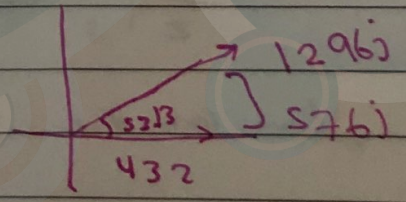 1296j
53.13
576j
432